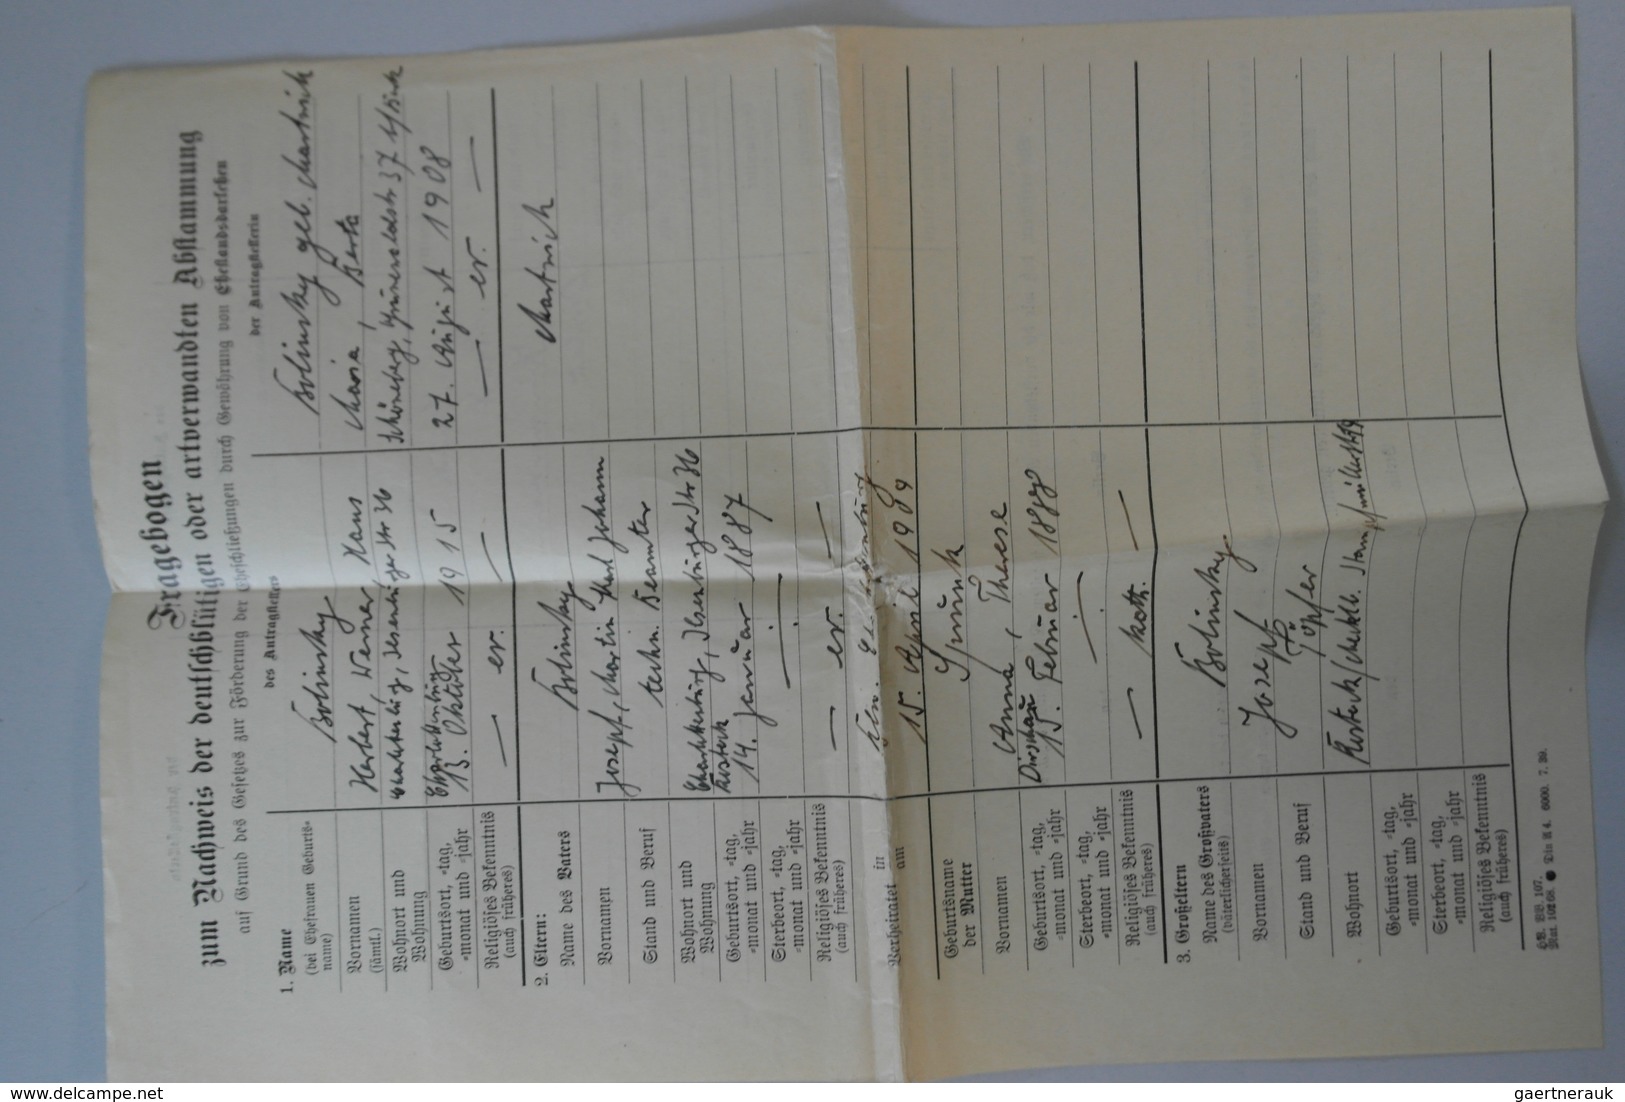 Fragebogen
zum Nachweis der deutschblütigen oder artverwandten Abstammung
auf Grund des Gesetzes zur Förderung der Eheschließungen durch Gewährung von Ehestandsdarlehen
des Antragstellers
der Antragstellerin
1. Name
(bei Ehefrauen Geburts-
name)
Bolinsky
Bolinsky geb. Martnick
Vornamen
(sämtl.)
Herbert, Werner, Hans
Maria, Berta
Wohnort und
Wohnung
36
Schöneberg, 37
Geburtsort, -tag,
-monat und -jahr
13. Oktober 1915
27. August 1908
Religiöses Bekenntnis
(auch früheres)
— ev. —
— ev. —
2. Eltern:
Name des Vaters
Bolinsky
Martnick
Vornamen
Josef, Martin Johann
Stand und Beruf
techn. Beamter
Wohnort und
Wohnung
36
Geburtsort, -tag,
-monat und -jahr
Rostock
14. Januar 1887
Sterbeort, -tag,
-monat und -jahr
Religiöses Bekenntnis
(auch früheres)
— ev. —
Verheiratet in
am
15. April 1909
Geburtsname
der Mutter
Vornamen
Anna, Therese
Geburtsort, -tag,
-monat und -jahr
Dirschau
15. Februar 1888
Sterbeort, -tag,
-monat und -jahr
Religiöses Bekenntnis
(auch früheres)
— kath. —
3. Großeltern
Name des Großvaters
(väterlicherseits)
Bolinsky
Vornamen
Josef
Stand und Beruf
Töpfer
Wohnort
Rostock
Geburtsort, -tag,
-monat und -jahr
Sterbeort, -tag,
-monat und -jahr
Religiöses Bekenntnis
(auch früheres)
Din A 4. 6000. 7. 39.
www.delcampe.net
gaertnerauk